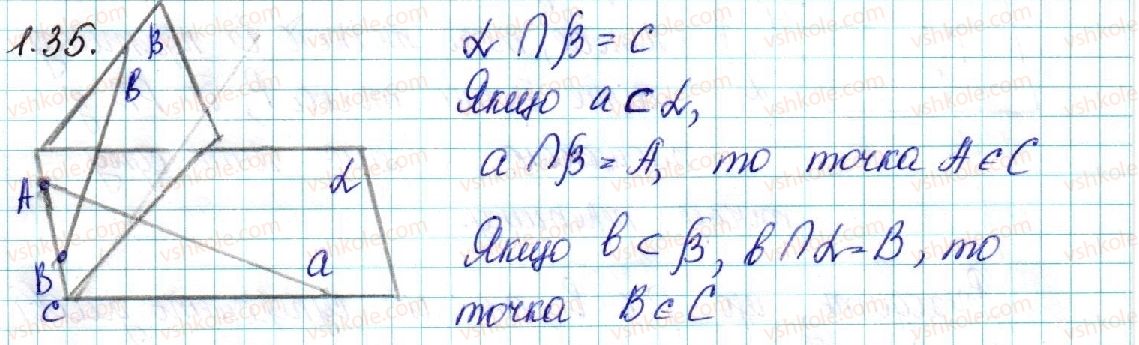 1.35.
β
в
A
α
B
a
C
α ∩ β = C
Якщо a ⊂ α,
a ∩ β = A, то точка A ∈ C
Якщо в ⊂ β, в ∩ α = B, то
точка B ∈ C